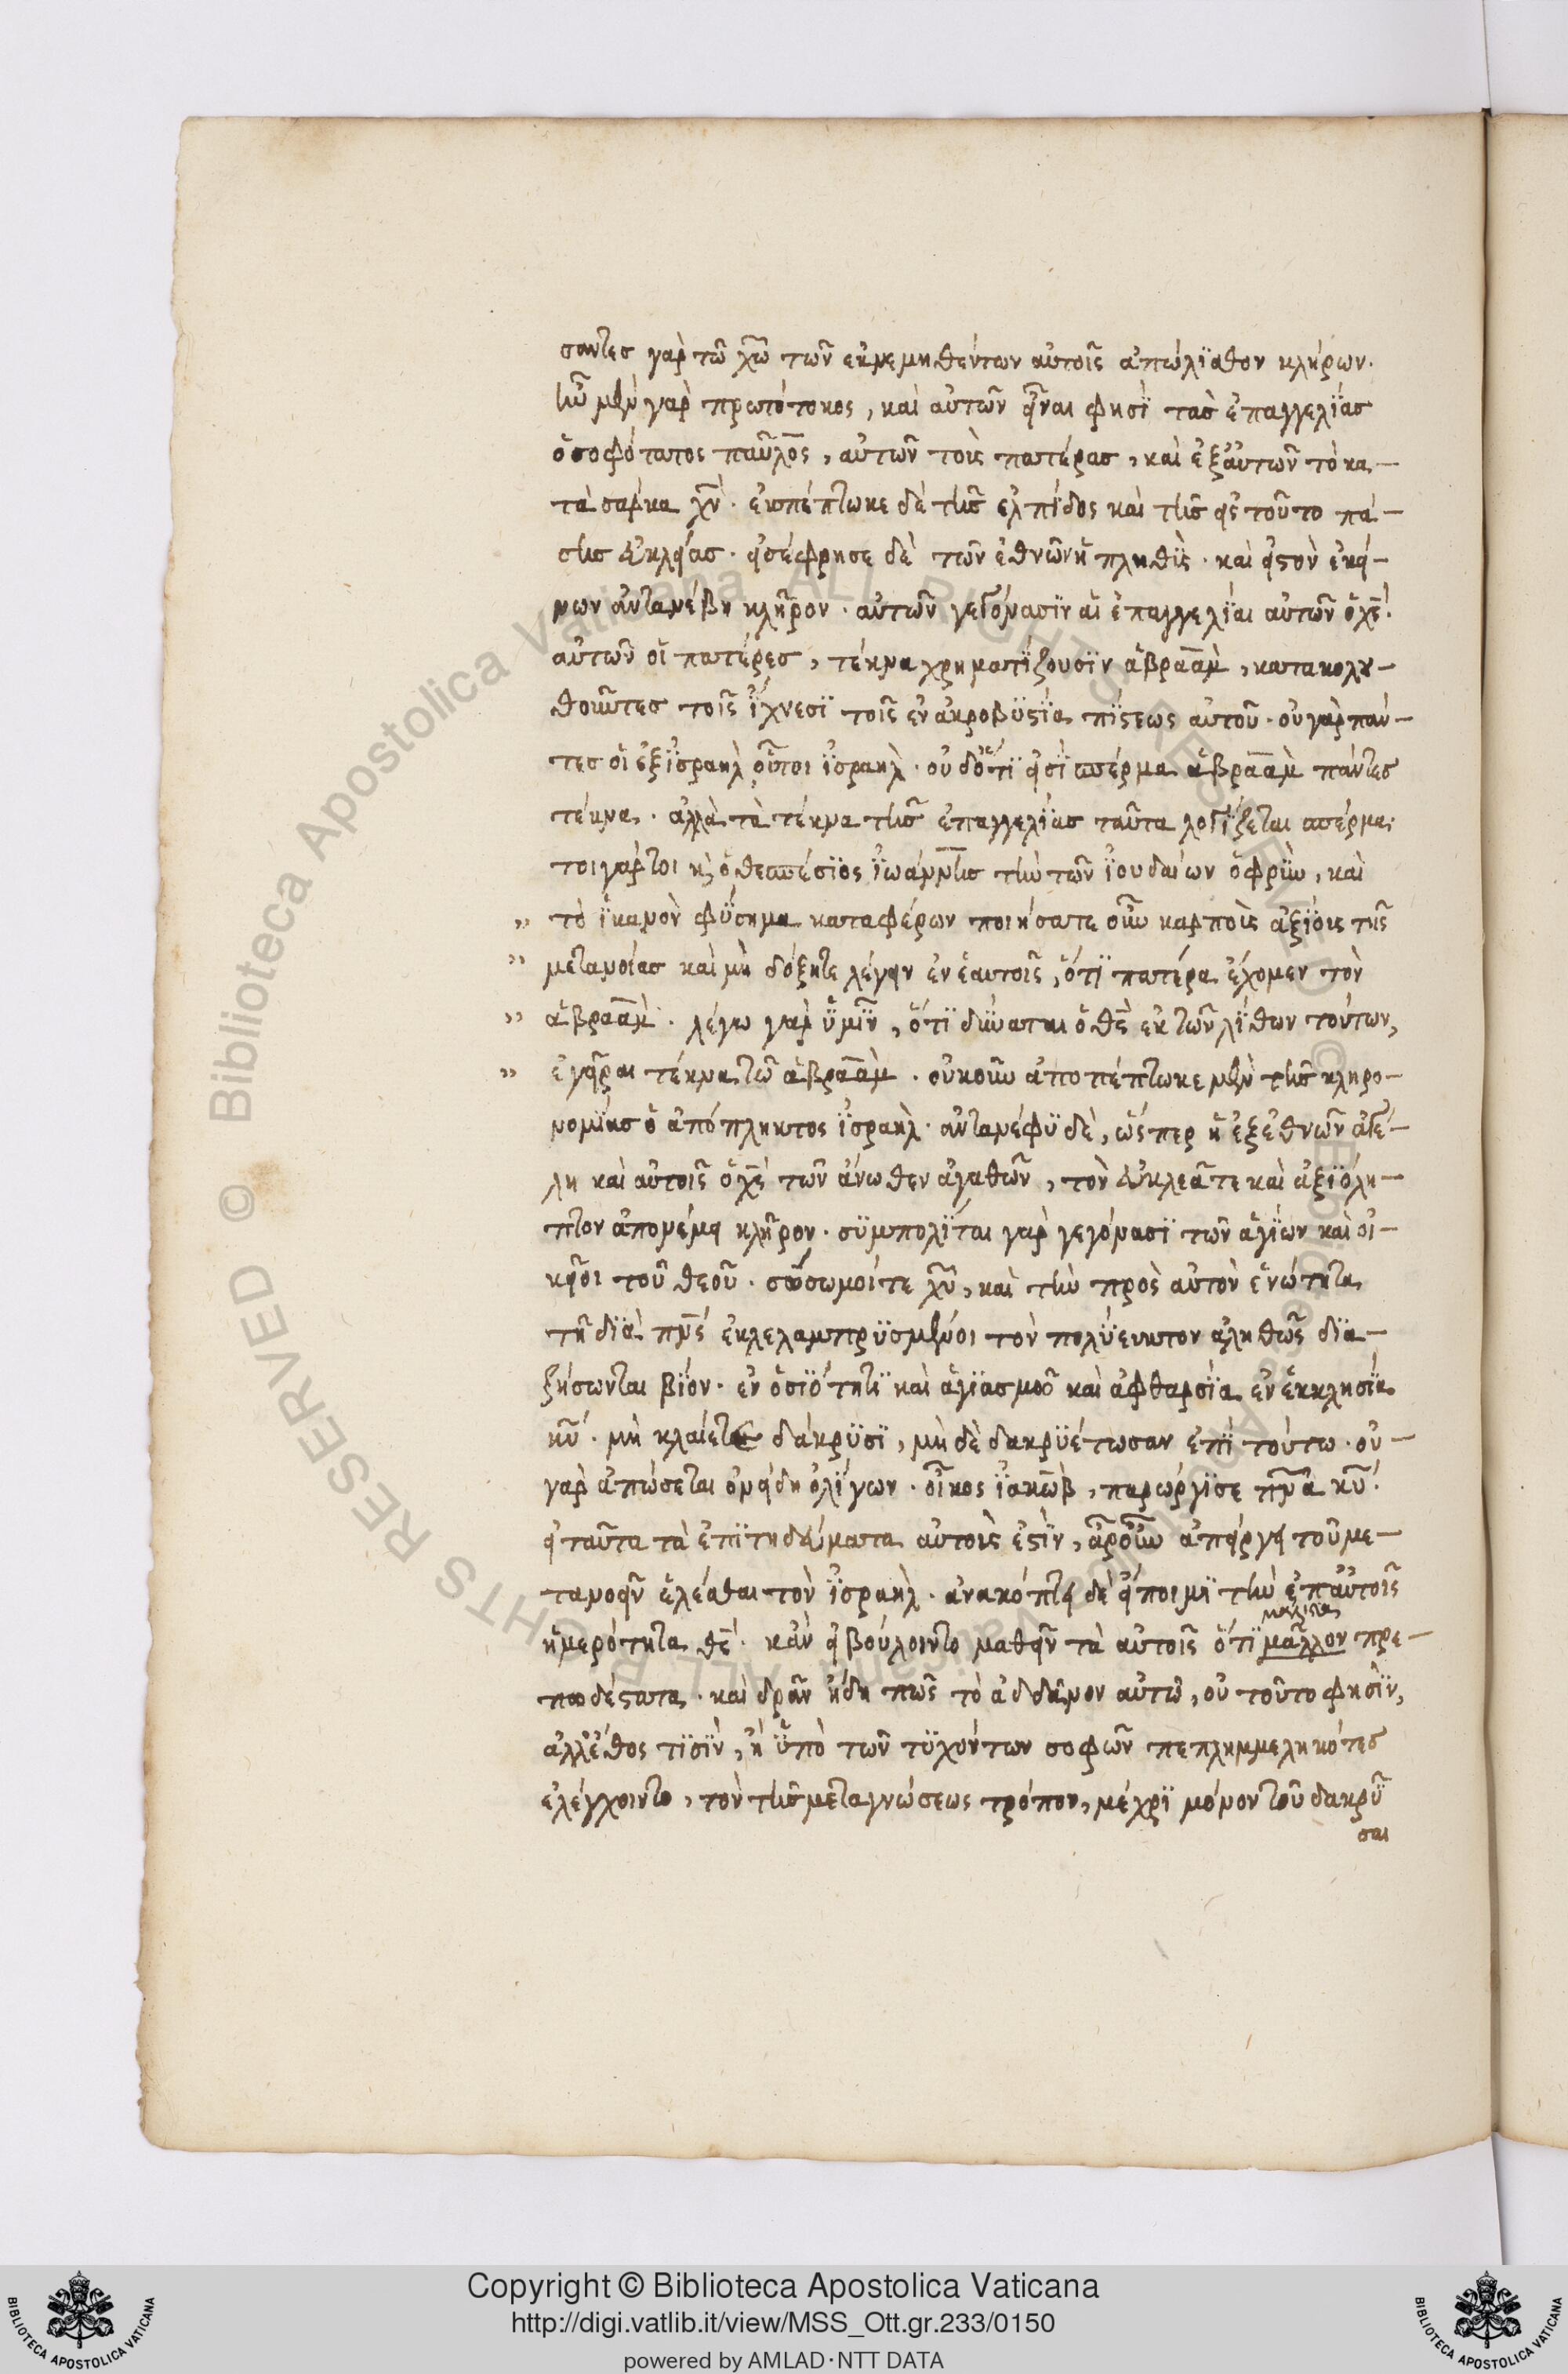 σαντες γὰρ τῶ χω τῶν ἐκνεμηθέντων αὐτοῖς ἀπώλισθον κλήρων.
ἦν μὲν γὰρ πρωτότοκος, καὶ αὐτῶν εἶναι φησὶ τὰς ἐπαγγελίας
ὁ σοφότατος παῦλος, αὐτῶν τοὺς πατέρας, καὶ ἐξ αὐτῶν τὸ κα-
τὰ σάρκα χν. ἐκπέπτωκε δὲ τῆς ἐλπίδος καὶ τῆς εἰς τοῦτο πά-
σης εὐκλείας. εἰσέφρησε δὲ τῶν ἐθνῶν ἡ πληθὺς. καὶ εἰς τὸν ἐκεί-
νων ἀντανέβη κλῆρον. αὐτῶν γεγόνασιν αἱ ἐπαγγελίαι αὐτῶν ὁ χς.
αὐτῶν οἱ πατέρες, τέκνα χρηματίζουσιν ἀβραὰμ, κατακολου-
θοῦντες τοῖς ἴχνεσι τοῖς ἐν ἀκροβυστία πίστεως αὐτοῦ. οὐ γὰρ πάν-
τες οἱ ἐξ ἰσραηλ οὗτοι ἰσραηλ. οὐδ' ὅτι εἰσὶ σπέρμα ἀβραὰμ πάντες
τέκνα. ἀλλὰ τὰ τέκνα τῆς ἐπαγγελίας ταῦτα λογίζεται σπέρμα.
τοιγάρτοι κ ὁ θεσπέσιος ἰωάννης τὴν τῶν ἰουδαίων ὀφρὺν, καὶ
„ τὸ ἱκανὸν φύσημα καταφέρων ποιήσατε οὖν καρποὺς ἀξίους τῆς
„ μετανοίας καὶ μὴ δόξητε λέγειν ἐν ἑαυτοῖς, ὅτι πατέρα ἔχομεν τὸν
„ ἀβραάμ. λέγω γὰρ ὑμῖν, ὅτι δύναται ὁ θς ἐκ τῶν λίθων τούτων,
„ ἐγεῖραι τέκνα τῶ ἀβραὰμ. οὐκοῦν ἀποπέπτωκε μὲν τῆς κληρο-
νομίας ὁ ἀπόπληκτος ἰσραηλ. ἀντανέφυ δὲ, ὥσπερ ἡ ἐξ ἐθνῶν ἀγέ-
λη καὶ αὐτοῖς ὁ χς τῶν ἄνωθεν ἀγαθῶν, τὸν εὐκλεᾶ τε καὶ ἀξιόλη-
πτον ἀπονέμει κλῆρον. συμπολῖται γὰρ γεγόνασι τῶν ἁγίων καὶ οἰ-
κεῖοι τοῦ θεοῦ. σύσσωμοί τε χυ, καὶ τὴν πρὸς αὐτὸν ἑνότητα
τῆ διὰ πνς ἐκλελαμπρυσμένοι τὸν πολύευκτον ἀληθῶς δια-
ζήσωνται βίον. ἐν ὁσιότητι καὶ ἁγιασμῶ καὶ ἀφθαρσία ἐν ἐκκλησία
κυ. μὴ κλαίετε δάκρυσι, μὴ δὲ δακρυέτωσαν ἐπὶ τούτω. οὐ-
γὰρ ἀπώσεται ὀνείδη ὀλίγων. οἶκος ἰακωβ, παρώργισε πνα κυ.
εἰ ταῦτα τὰ ἐπιτηδεύματα αὐτοῖς ἐστὶν, ἆρ' οὖν ἀπείργει τοῦ με-
τανοεῖν ἑλέσθαι τὸν ἰσραηλ. ἀνακόπτει δὲ εἴποι μι τὴν ἐπ' αὐτοῖς
μάλιστα
ἡμερότητα θς. κἂν εἰ βούλοιντο μαθεῖν τὰ αὐτοῖς ὅτι μᾶλλον πρε-
πωδέστατα. καὶ δρᾶν ἤδη πως τὸ ἁδδάμον αὐτῶ, οὐ τοῦτο φησὶν,
ἀλλ' ἔθος τισὶν, ἢ ὑπὸ τῶν τυχόντων σοφῶν πεπλημμεληκότες
ἐλέγχοιντο, τὸν τῆς μεταγνώσεως τρόπον, μέχρι μόνον τοῦ δακρῦ
σαι
Copyright © Biblioteca Apostolica Vaticana
http://digi.vatlib.it/view/MSS_Ott.gr.233/0150
powered by AMLAD·NTT DATA